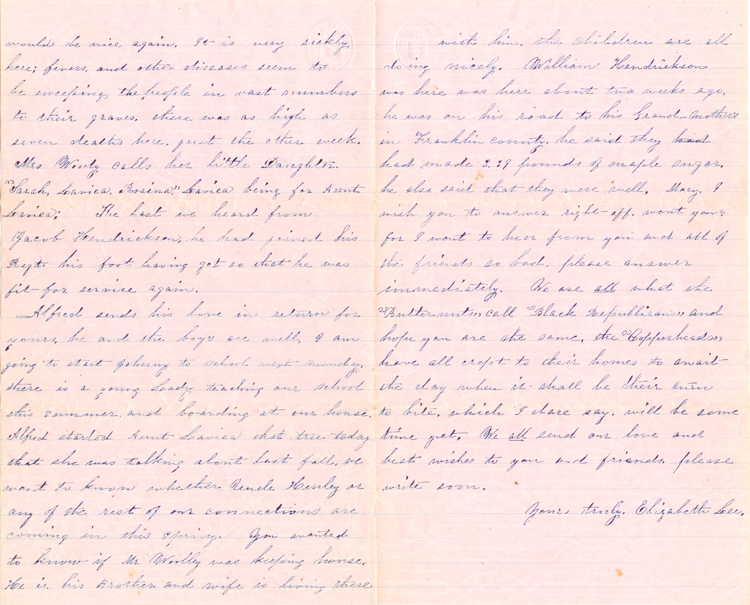 would be nice again. It is very sickly
here; fevers, and other diseases seem to
be sweeping the people in vast numbers
to their graves. there was as high as
seven deaths here, just the other week.
Mrs Wooly calls her little Daughter
"Sarah, Lavica, Rosina," Lavica being for Aunt
Lavica; The last we heard from
Jacob Hendrickson, he had joined his
Regt. his foot having got so that he was
fit for service again.
Alfred sends his love in return for
yours, he and the boys are well, I am
going to start Johnny to school next Monday,
there is a young Lady, teaching our school
this summer, and boarding at our house.
Alfred started Aunt Lavica that tree today
that she was talking about last fall, we
want to know whether Uncle Henley or
any of the rest of our connections are
coming in this spring. You wanted
to know if Mr Woolley was keeping house.
He is his Brother and wife is living there
with him. the children are all
doing nicely. William Hendrickson
was here was here about two weeks ago,
he was on his road to his Grand-Mothers
in Franklin county, he said they had
had made 229 pounds of maple sugar.
he also said that they were well, Mary, I
wish you to answer right-off, wont you,
for I want to hear from you and all of
the friends so bad. please answer
immediately. We are all what the
"Butternuts" call "Black Republicans" and
hope you are the same, the "Copperheads"
have all crept to their homes to await
the day when it shall be their turn
to bite, which I dare say, will be some
time yet. We all send our love and
best wishes to you and friends, please
write soon.
Yours truly. Elizabeth Lee.